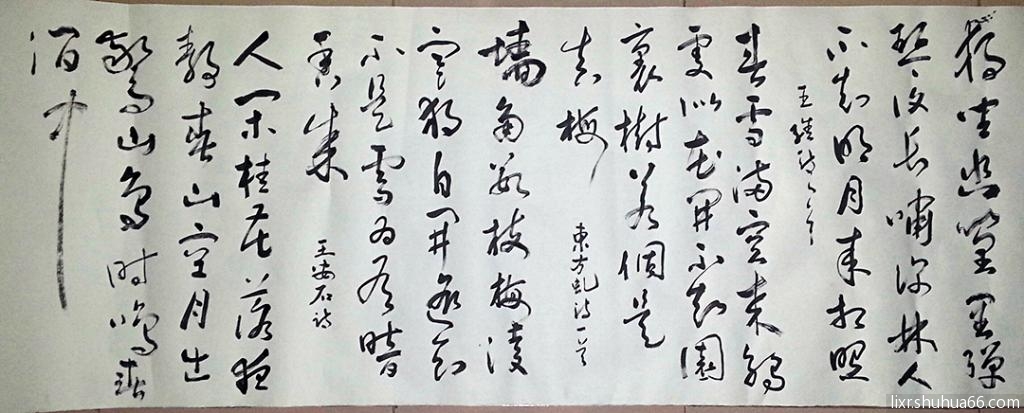 獨坐幽篁里彈
琴復長嘯深林人
不知明月來相照
王維詩一首
春雪滿空來觸
處似花開不知園
裏樹若個是
真梅
東方虬詩一首
墻角數枝梅凌
寒獨自開遙知
不是雪為有暗
香來
王安石詩
人閑桂花落夜
靜春山空月出
驚山鳥時鳴春
澗中
lixr.shuhua66.com